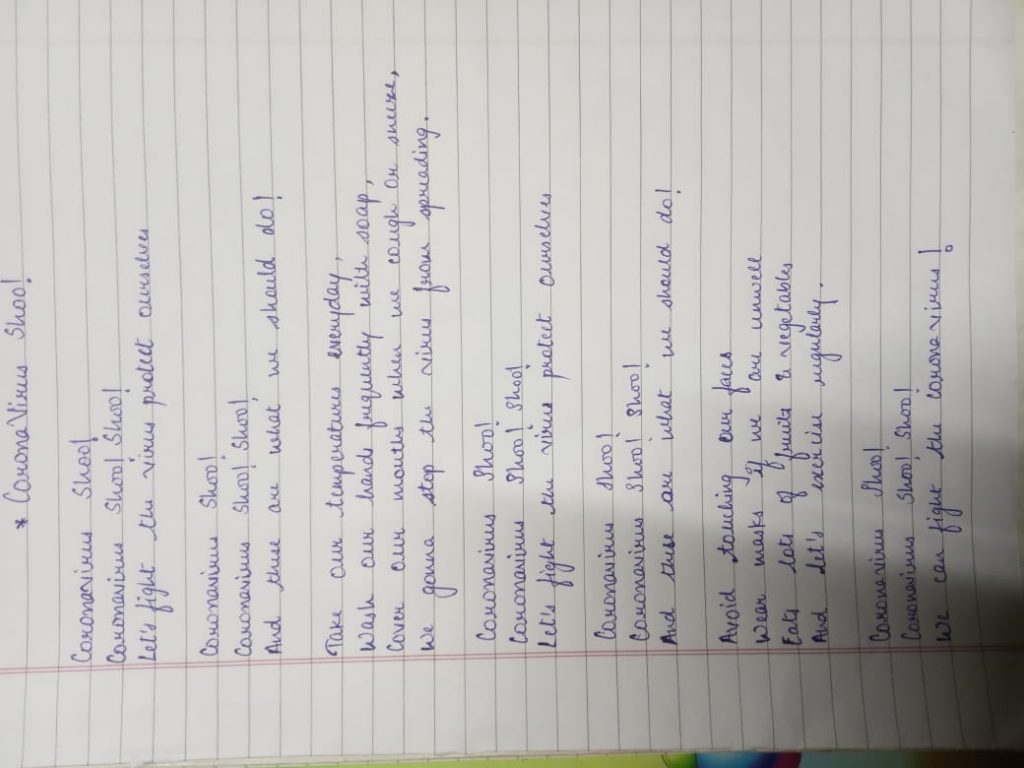 * CoronaVirus Shoo!
Coronavirus Shoo!
Coronavirus Shoo! Shoo!
Let's fight the virus protect ourselves
Coronavirus Shoo!
Coronavirus Shoo! Shoo!
And these are what we should do!
Take our temperatures everyday,
Wash our hands frequently with soap,
Cover our mouths when we cough or sneeze,
We gonna stop the virus from spreading.
Coronavirus Shoo!
Coronavirus Shoo! Shoo!
Let's fight the virus protect ourselves
Coronavirus Shoo!
Coronavirus Shoo! Shoo!
And these are what we should do!
Avoid touching our faces
Wear masks If we are unwell
Eats lots of fruits & vegetables
And let's exercise regularly.
Coronavirus Shoo!
Coronavirus Shoo! Shoo!
We can fight the coronavirus!